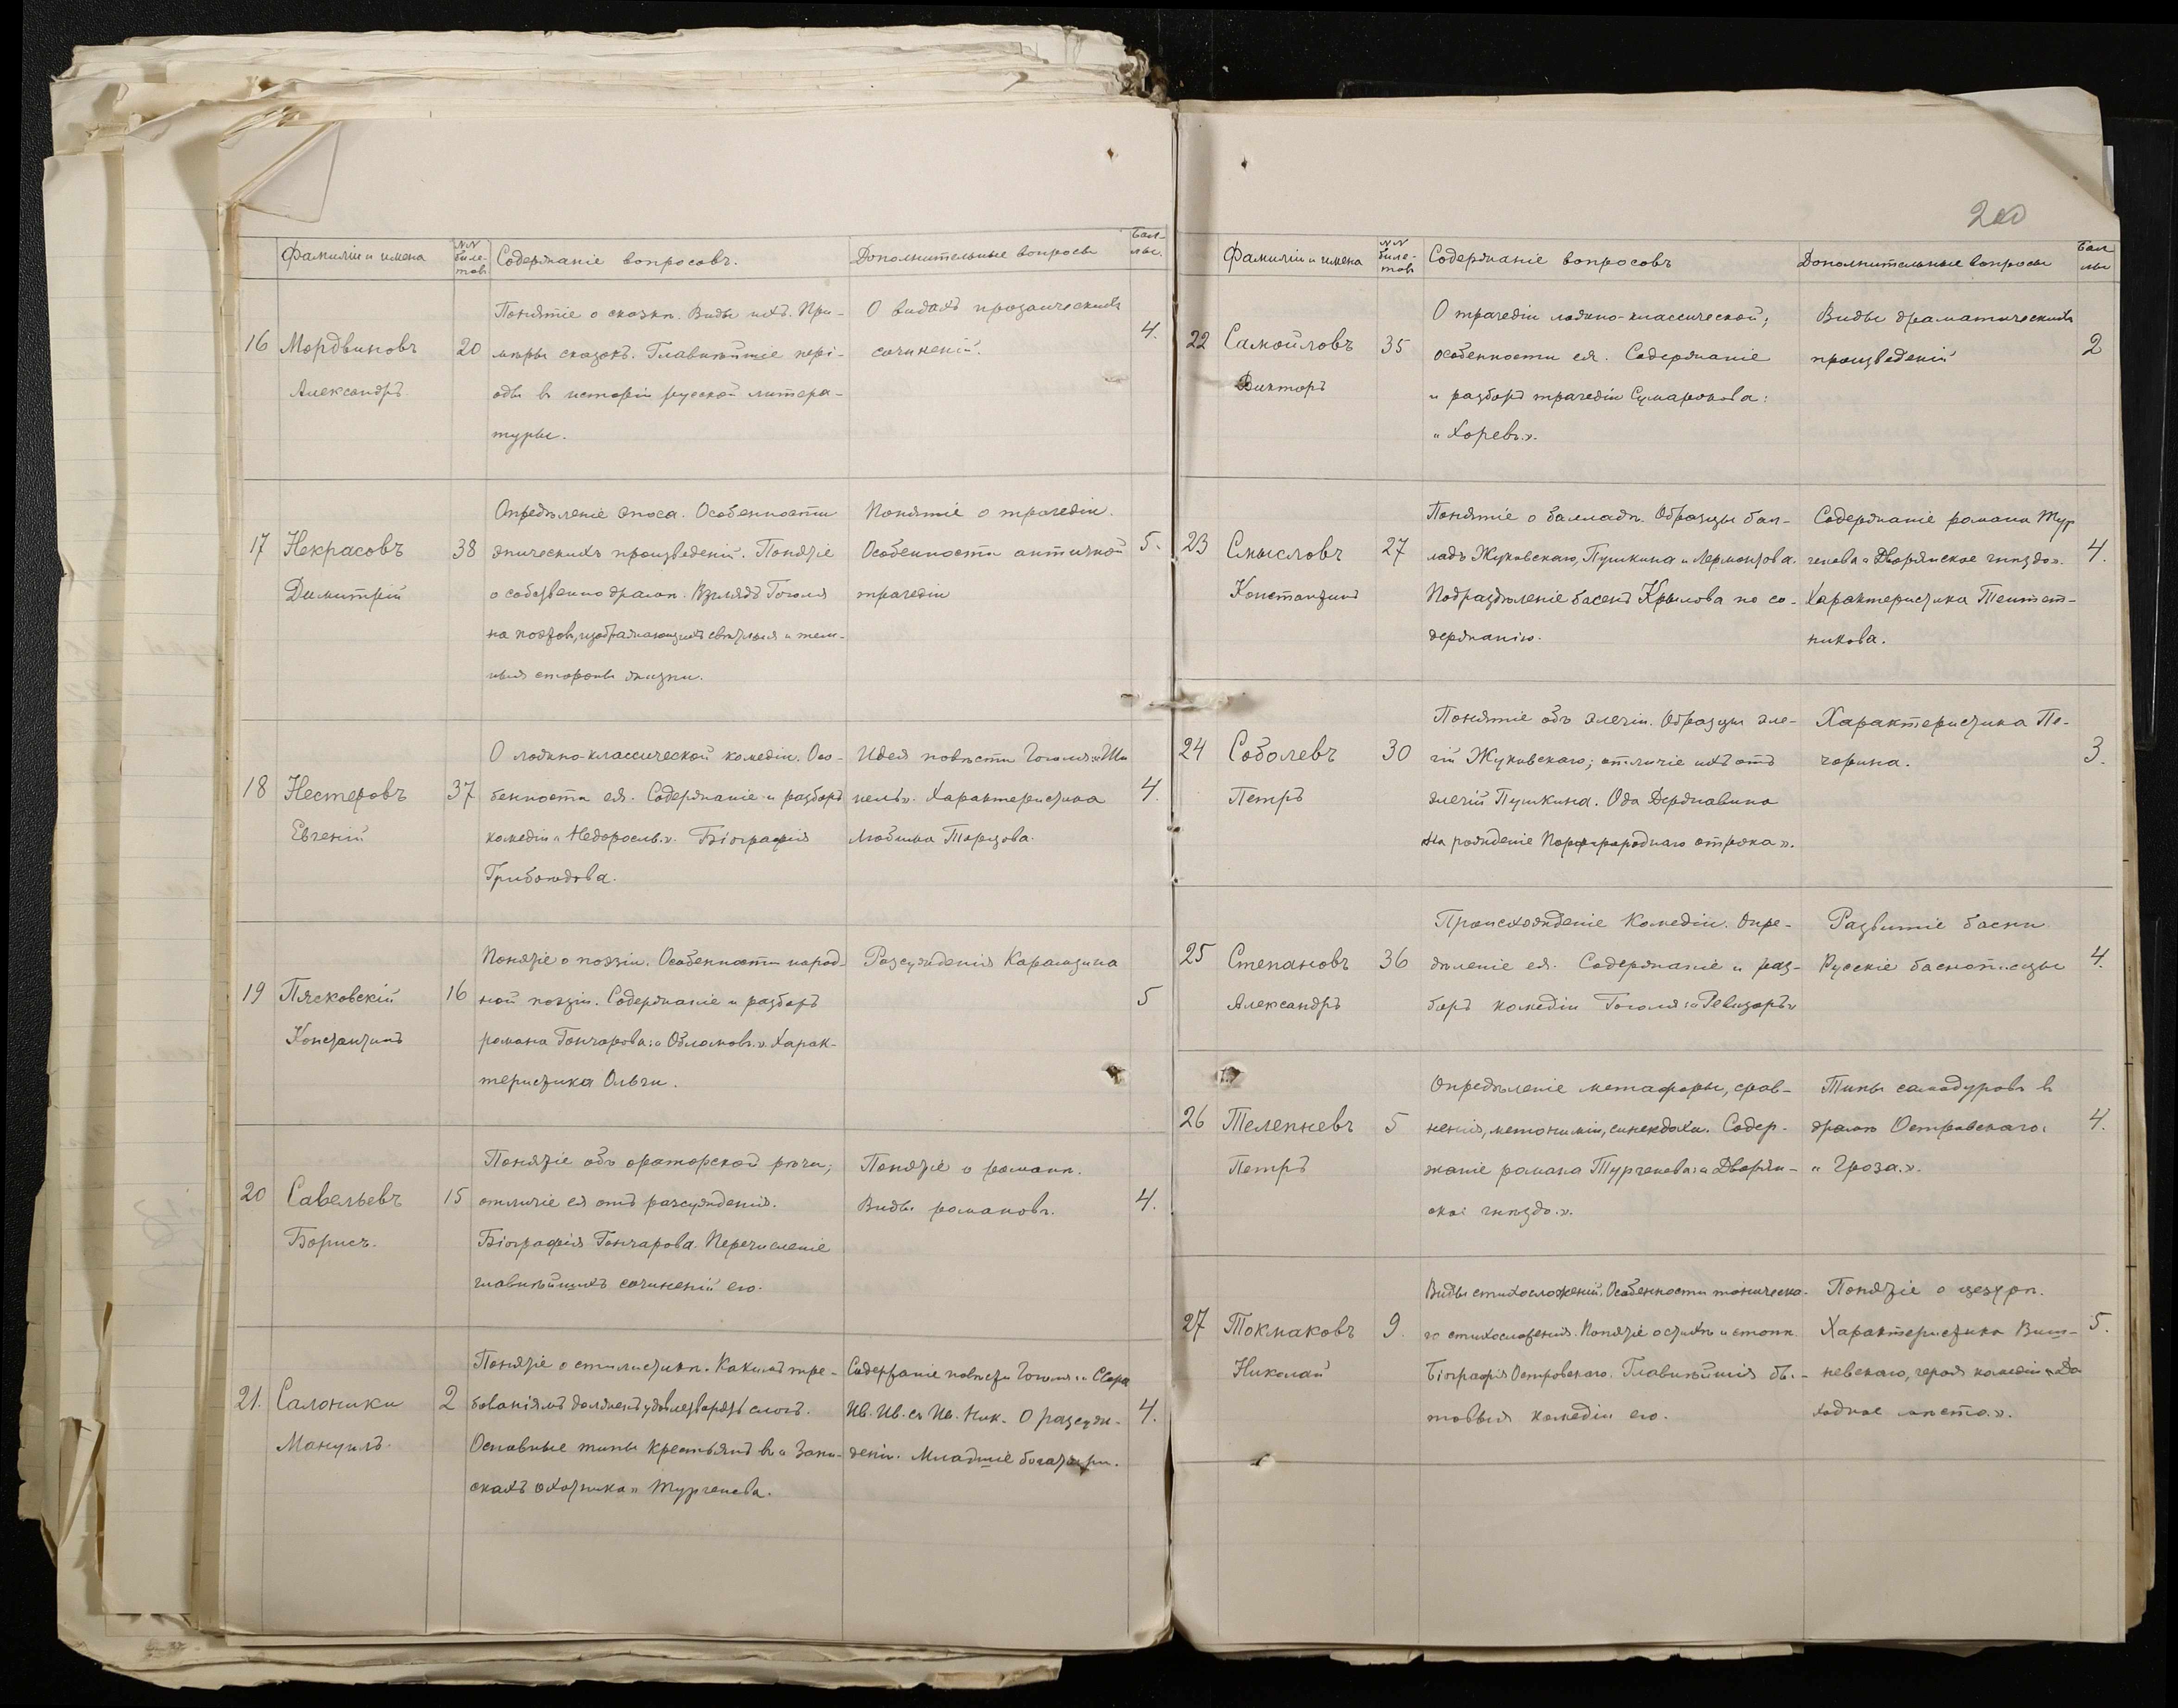 Фамиліи и имена
NN биле-тов.
Содержаніе вопросовъ.
Дополнительные вопросы
Бал-лы.
16 Мордвиновъ Александръ
20
Понятіе о сказкѣ. Виды ихъ. При-
мѣры сказокъ. Главнѣйшіе пері-
оды въ исторіи русской литера-
туры.
О видахъ прозаическихъ
сочиненій.
4.
17 Некрасовъ Димитрій
38
Опредѣленіе эпоса. Особенности
эпическихъ произведеній. Понятіе
о собственно драмѣ. Взглядъ Гоголя
на поэтовъ, изображающихъ свѣтлыя и тем-
ныя стороны жизни.
Понятіе о трагедіи.
Особенности античной
трагедіи
5.
18 Нестеровъ Евгеній
37
О ложно-классической комедіи. Осо-
бенности ея. Содержаніе и разборъ
комедіи „Недоросль.". Біографія
Грибоѣдова.
Идея повѣсти Гоголя: „Ши
нель". Характеристика
Любима Торцова.
4.
19 Пясковскій Константинъ
16
Понятіе о поэзіи. Особенности народ-
ной поэзіи. Содержаніе и разборъ
романа Гончарова: „Обломовъ.". Харак-
теристика Ольги.
Разсужденія Карамзина
5
20 Савельевъ Борисъ.
15
Понятіе объ ораторской рѣчи;
отличіе ея отъ разсужденія.
Біографія Гончарова. Перечисленіе
главнѣйшихъ сочиненій его.
Понятіе о романѣ.
Виды романовъ.
4.
21. Салоники Мануилъ
2
Понятіе о стилистикѣ. Какимъ тре-
бованіямъ долженъ удовлетворять слогъ.
Основные типы крестьянъ въ „Запи-
скахъ охотника" Тургенева.
Содержаніе повѣсти Гоголя: „Ссора
Ив. Ив. съ Ив. Ник. О разсуж-
деніи. Младшіе богатыри.
4.
200
Фамиліи и имена
NN биле-тов
Содержаніе вопросовъ
Дополнительные вопросы
Бал лы
22 Самойловъ Викторъ
35
О трагедіи ложно-классической;
особенности ея. Содержаніе
и разборъ трагедіи Сумарокова:
„Хоревъ.".
Виды драматическихъ
произведеній
2
23 Смысловъ Константинъ
27
Понятіе о балладѣ. Образцы бал-
ладъ Жуковскаго, Пушкина и Лермонтова.
Подраздѣленіе басенъ Крылова по со-
держанію.
Содержаніе романа Тур
генева „Дворянское гнѣздо".
Характеристика Тентет-
никова.
4.
24 Соболевъ Петръ
30
Понятіе объ элегіи. Образцы эле-
гій Жуковскаго; отличіе ихъ отъ
элегій Пушкина. Ода Державина
„На рожденіе Порфиророднаго отрока".
Характеристика Пе-
чорина.
3.
25 Степановъ Александръ
36
Происхожденіе Комедіи. Опре-
дѣленіе ея. Содержаніе и раз-
боръ комедіи Гоголя: „Ревизоръ"
Развитіе басни
Русскіе баснописцы
4.
26 Телепневъ Петръ
5
Опредѣленіе метафоры, срав-
ненія, метониміи, синекдохи. Содер-
жаніе романа Тургенева: „Дворян-
ское гнѣздо.".
Типы самодуровъ въ
драмѣ Островскаго:
„Гроза.".
4.
27 Токмаковъ Николай
9.
Виды стихосложеній. Особенности тоническа-
го стихосложенія. Понятіе о стихѣ и стопѣ.
Біографія Островскаго. Главнѣйшія бы-
товыя комедіи его.
Понятіе о цезурѣ.
Характеристика Выш-
невскаго, героя комедіи „До
ходное мѣсто.".
5.